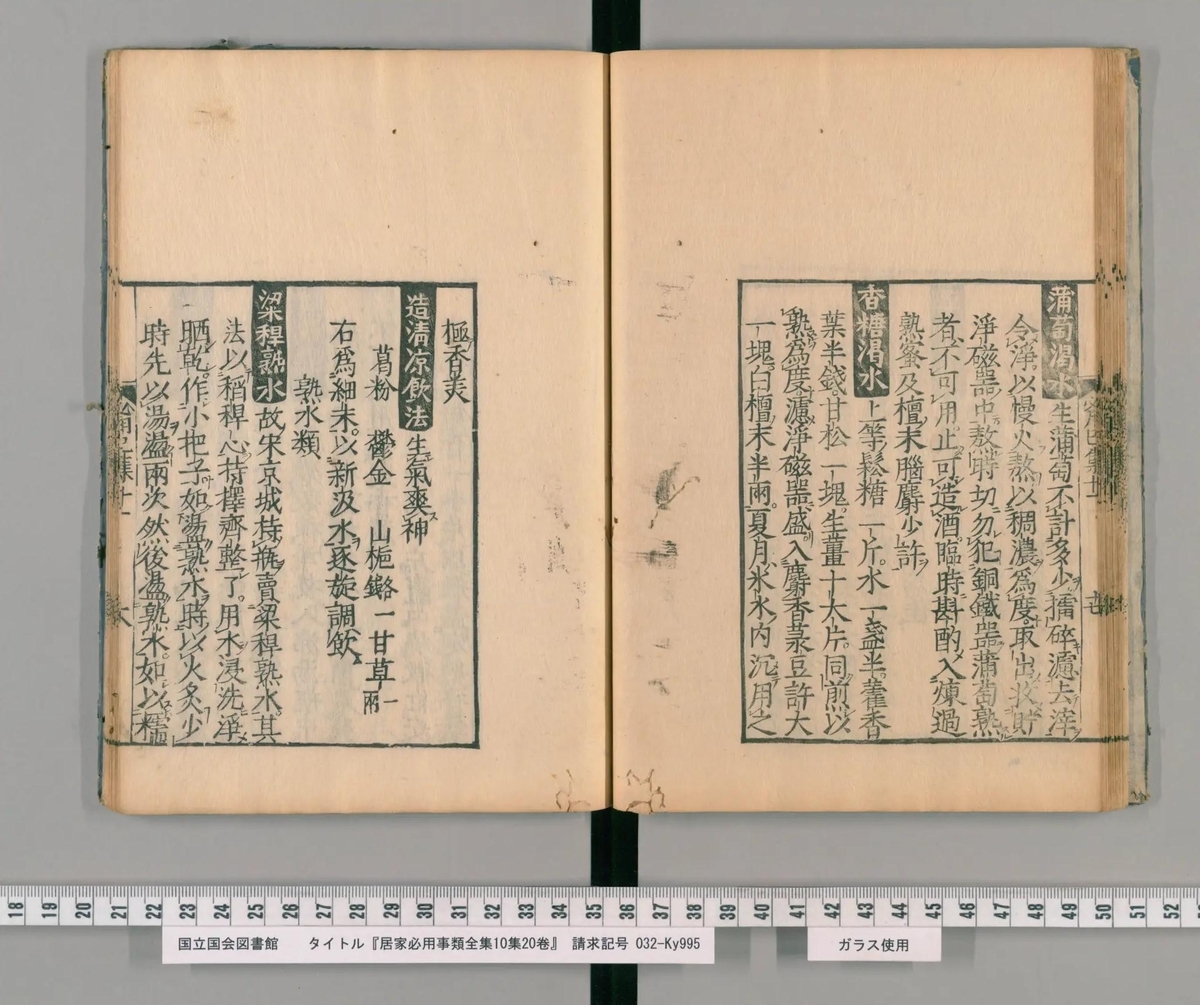 蒲萄渇水 生蒲萄不計多少擂碎濾去滓
令淨以慢火熬以稠濃爲度取出收貯
淨磁器中熬時切勿犯銅鐵器蒲萄熟
者不可用止可造酒臨時斟酌入煉過
熟蜜及檀末腦麝少許
香糖渇水 上等鬆糖一斤水一盞半藿香
葉半錢甘松一塊生薑十大片同煎以
熟爲度濾淨磁器盛入麝香菉豆許大
一塊白檀末半兩夏月氷水内沉用之
極香美
造清凉飲法 生氣爽神
葛粉 鬱金 山梔 各一 甘草一兩
右爲細末以新汲水逐旋調飲
熟水類
梁稈熟水 故宋京城持瓶賣梁稈熟水其
法以稻稈心持擇齊整了用水浸洗淨
晒乾作小把子如盪熟水時以火炙少
時先以湯盪兩次然後盪熟水如以糯
18 19 20 21 22 23 24 25 26 27 28 29 30 31 32 33 34 35 36 37 38 39 40 41 42 43 44 45 46 47 48 49 50 51 52
国立国会図書館 タイトル『居家必用事類全集10集20卷』 請求記号 032-Ky995
ガラス使用